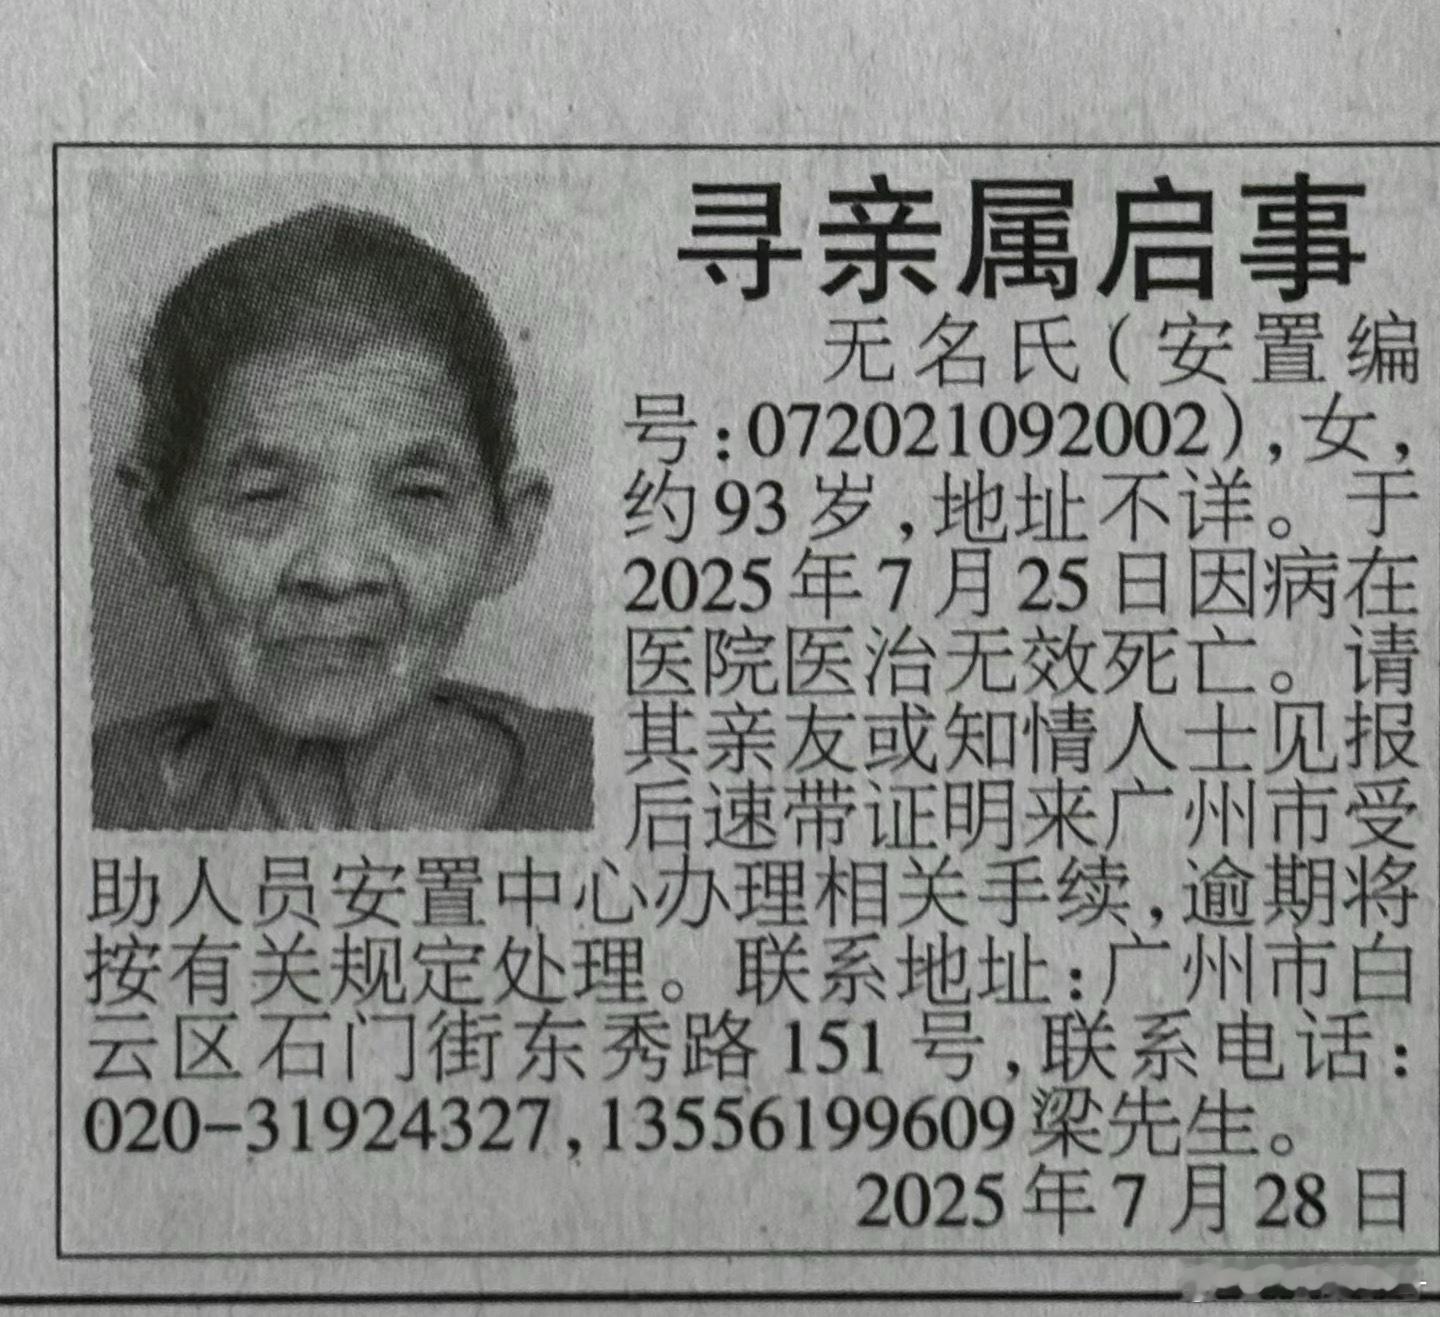 寻亲属启事
无名氏(安置编
号:072021092002),女,
约93岁,地址不详。于
2025年7月25日因病在
医院医治无效死亡。请
其亲友或知情人士见报
后速带证明来广州市受
助人员安置中心办理相关手续,逾期将
按有关规定处理。联系地址:广州市白
云区石门街东秀路151号,联系电话:
020-31924327,13556199609梁先生。
2025年7月28日